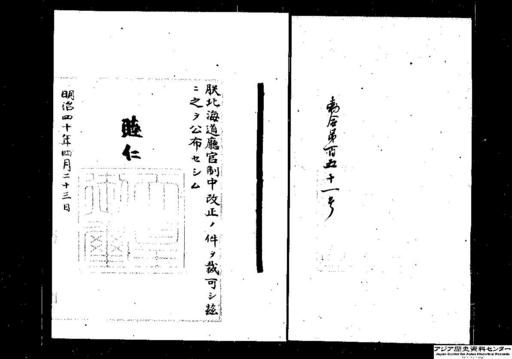 勅令第百五十一号
朕北海道廳官制中改正ノ件ヲ裁可シ茲
ニ之ヲ公布セシム
睦仁
明治四十年四月二十三日
アジア歴史資料センター
Japan Center for Asian Historical Records